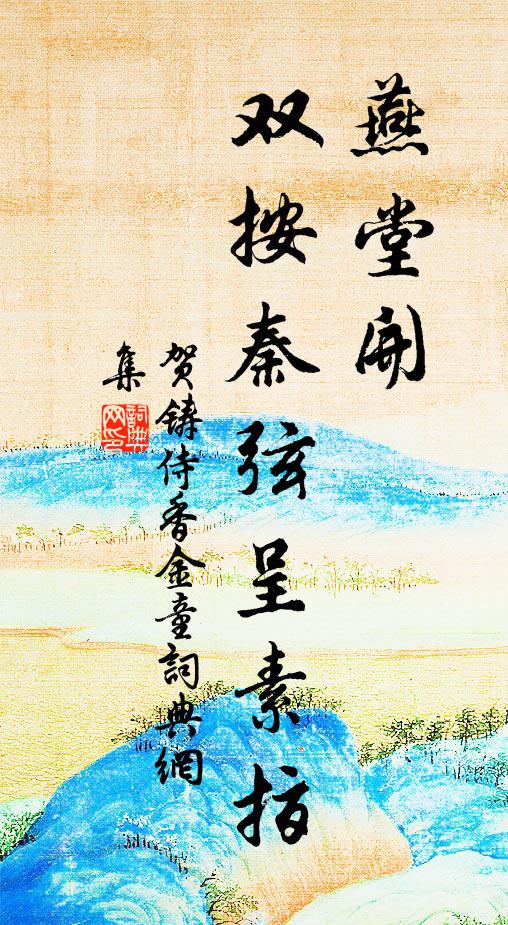 燕堂開
双按秦弦呈素指
贺鑄侍香金童詞典網
集
詞典
网印